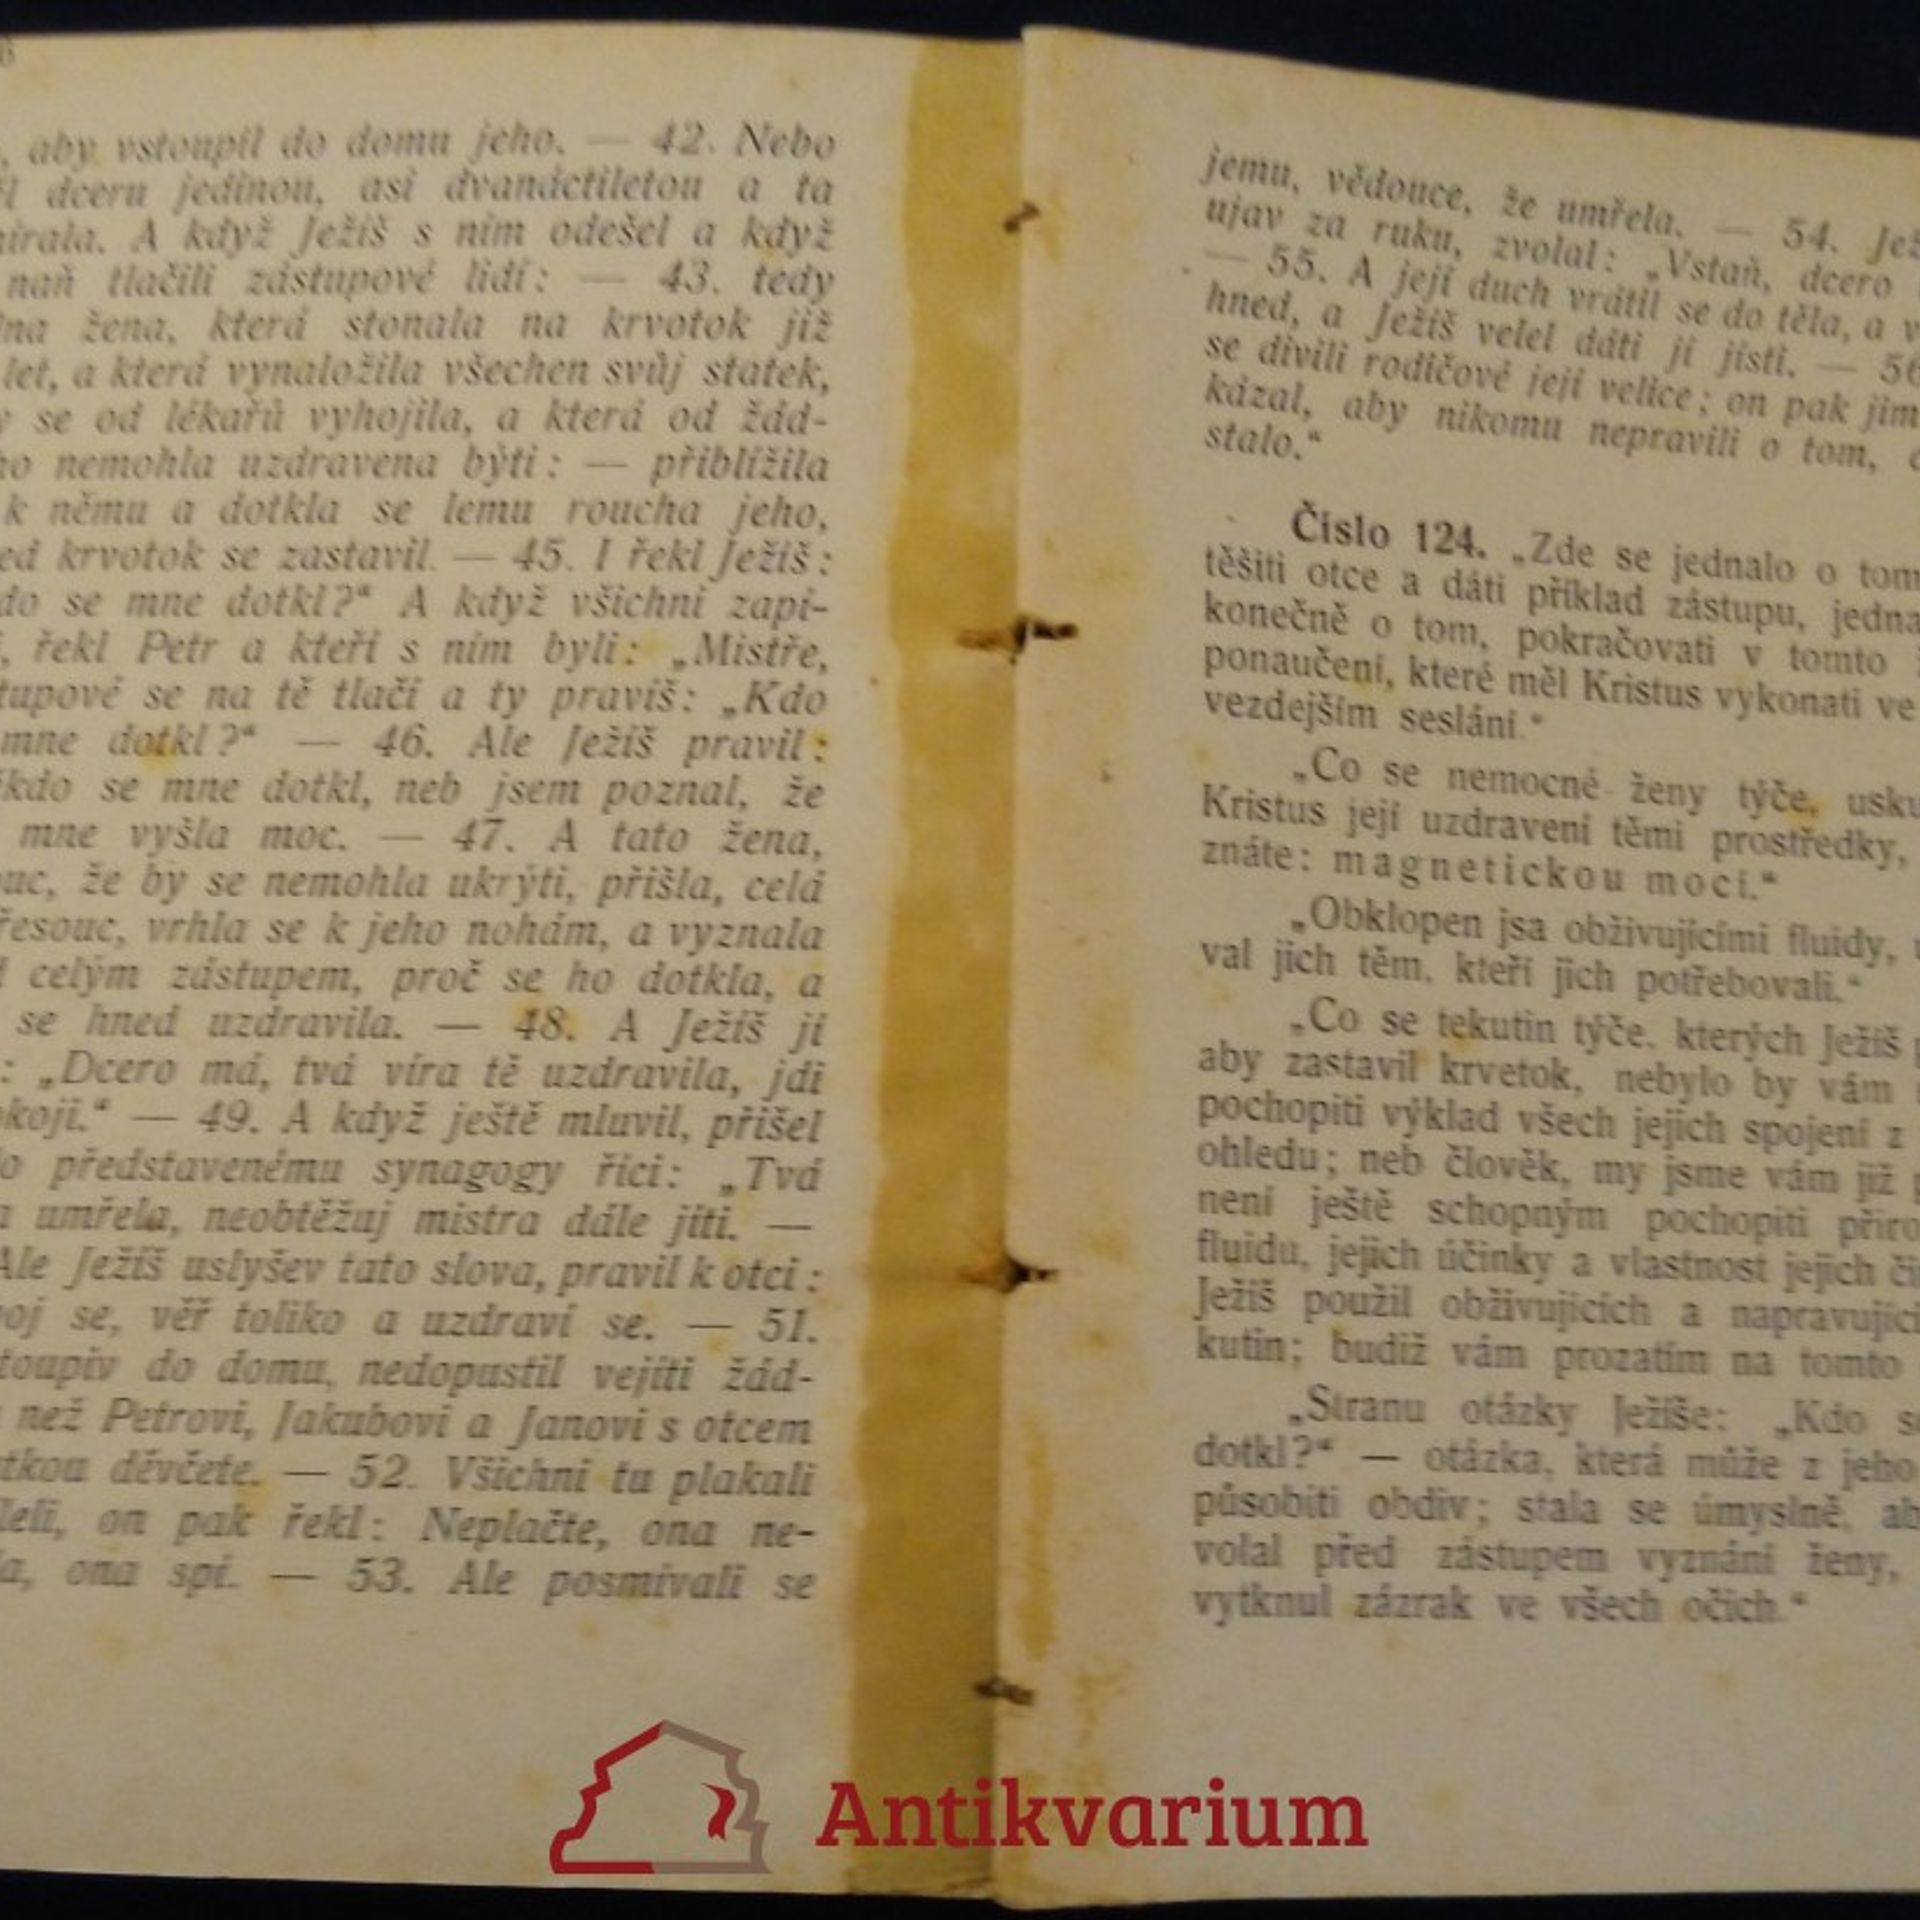 6
, aby vstoupil do domu jeho. — 42. Nebo
dceru jedinou, asi dvanáctiletou a ta
A když Ježíš s ním odešel a když
naň tlačili zástupové lidí: — 43. tedy
žena, která stonala na krvotok již
let, a která vynaložila všechen svůj statek,
se od lékařů vyhojila, a která od žád-
nemohla uzdravena býti: — přiblížila
k němu a dotkla se lemu roucha jeho,
krvotok se zastavil. — 45. I řekl Ježíš:
se mne dotkl?“ A když všichni zapí-
, řekl Petr a kteří s ním byli: „Mistře,
se na tě tlačí a ty pravíš: „Kdo
mne dotkl?“ — 46. Ale Ježíš pravil:
se mne dotkl, neb jsem poznal, že
mne vyšla moc. — 47. A tato žena,
že by se nemohla ukrýti, přišla, celá
vrhla se k jeho nohám, a vyznala
celým zástupem, proč se ho dotkla, a
se hned uzdravila. — 48. A Ježíš jí
: „Dcero má, tvá víra tě uzdravila, jdi
— 49. A když ještě mluvil, přišel
představenému synagogy říci: „Tvá
umřela, neobtěžuj mistra dále jíti. —
Ale Ježíš uslyšev tato slova, pravil k otci:
se, věř toliko a uzdraví se. — 51.
do domu, nedopustil vejíti žád-
než Petrovi, Jakubovi a Janovi s otcem
děvčete. — 52. Všichni tu plakali
on pak řekl: Neplačte, ona ne-
ona spí. — 53. Ale posmívali se
jemu, vědouce, že umřela. — 54.
ujav za ruku, zvolal: „Vstaň, dcero
— 55. A její duch vrátil se do těla, a
hned, a Ježíš velel dáti jí jísti. — 56
se divili rodičové její velice; on pak jim
kázal, aby nikomu nepravili o tom,
stalo.“
Číslo 124. „Zde se jednalo o tom
těšiti otce a dáti příklad zástupu,
konečně o tom, pokračovati v tomto
ponaučení, které měl Kristus vykonati ve
vezdejším seslání.“
„Co se nemocné ženy týče,
Kristus její uzdravení těmi prostředky,
znáte: magnetickou mocí.“
„Obklopen jsa obživujícími fluidy,
val jich těm, kteří jich potřebovali.“
„Co se tekutin týče, kterých Ježíš
aby zastavil krvetok, nebylo by vám
pochopiti výklad všech jejich spojení z
ohledu; neb člověk, my jsme vám již
není ještě schopným pochopiti
fluidu, jejich účinky a vlastnost jejich
Ježíš použil obživujících a
kutin; budiž vám prozatím na tomto
„Stranu otázky Ježíše: „Kdo
dotkl?“ — otázka, která může z jeho
působiti obdiv; stala se úmyslně,
volal před zástupem vyznání ženy,
vytknul zázrak ve všech očích.“
Antikvarium